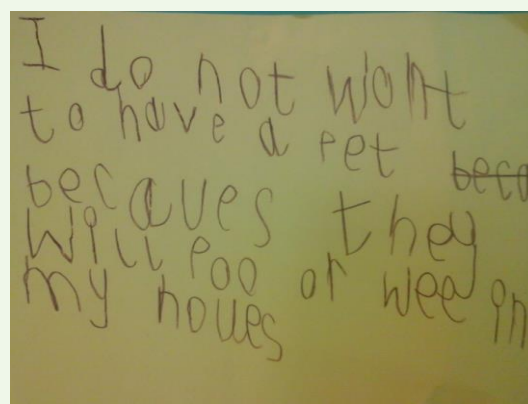 I do not wont
to have a pet beca
becaues they
will poo or wee in
my houes